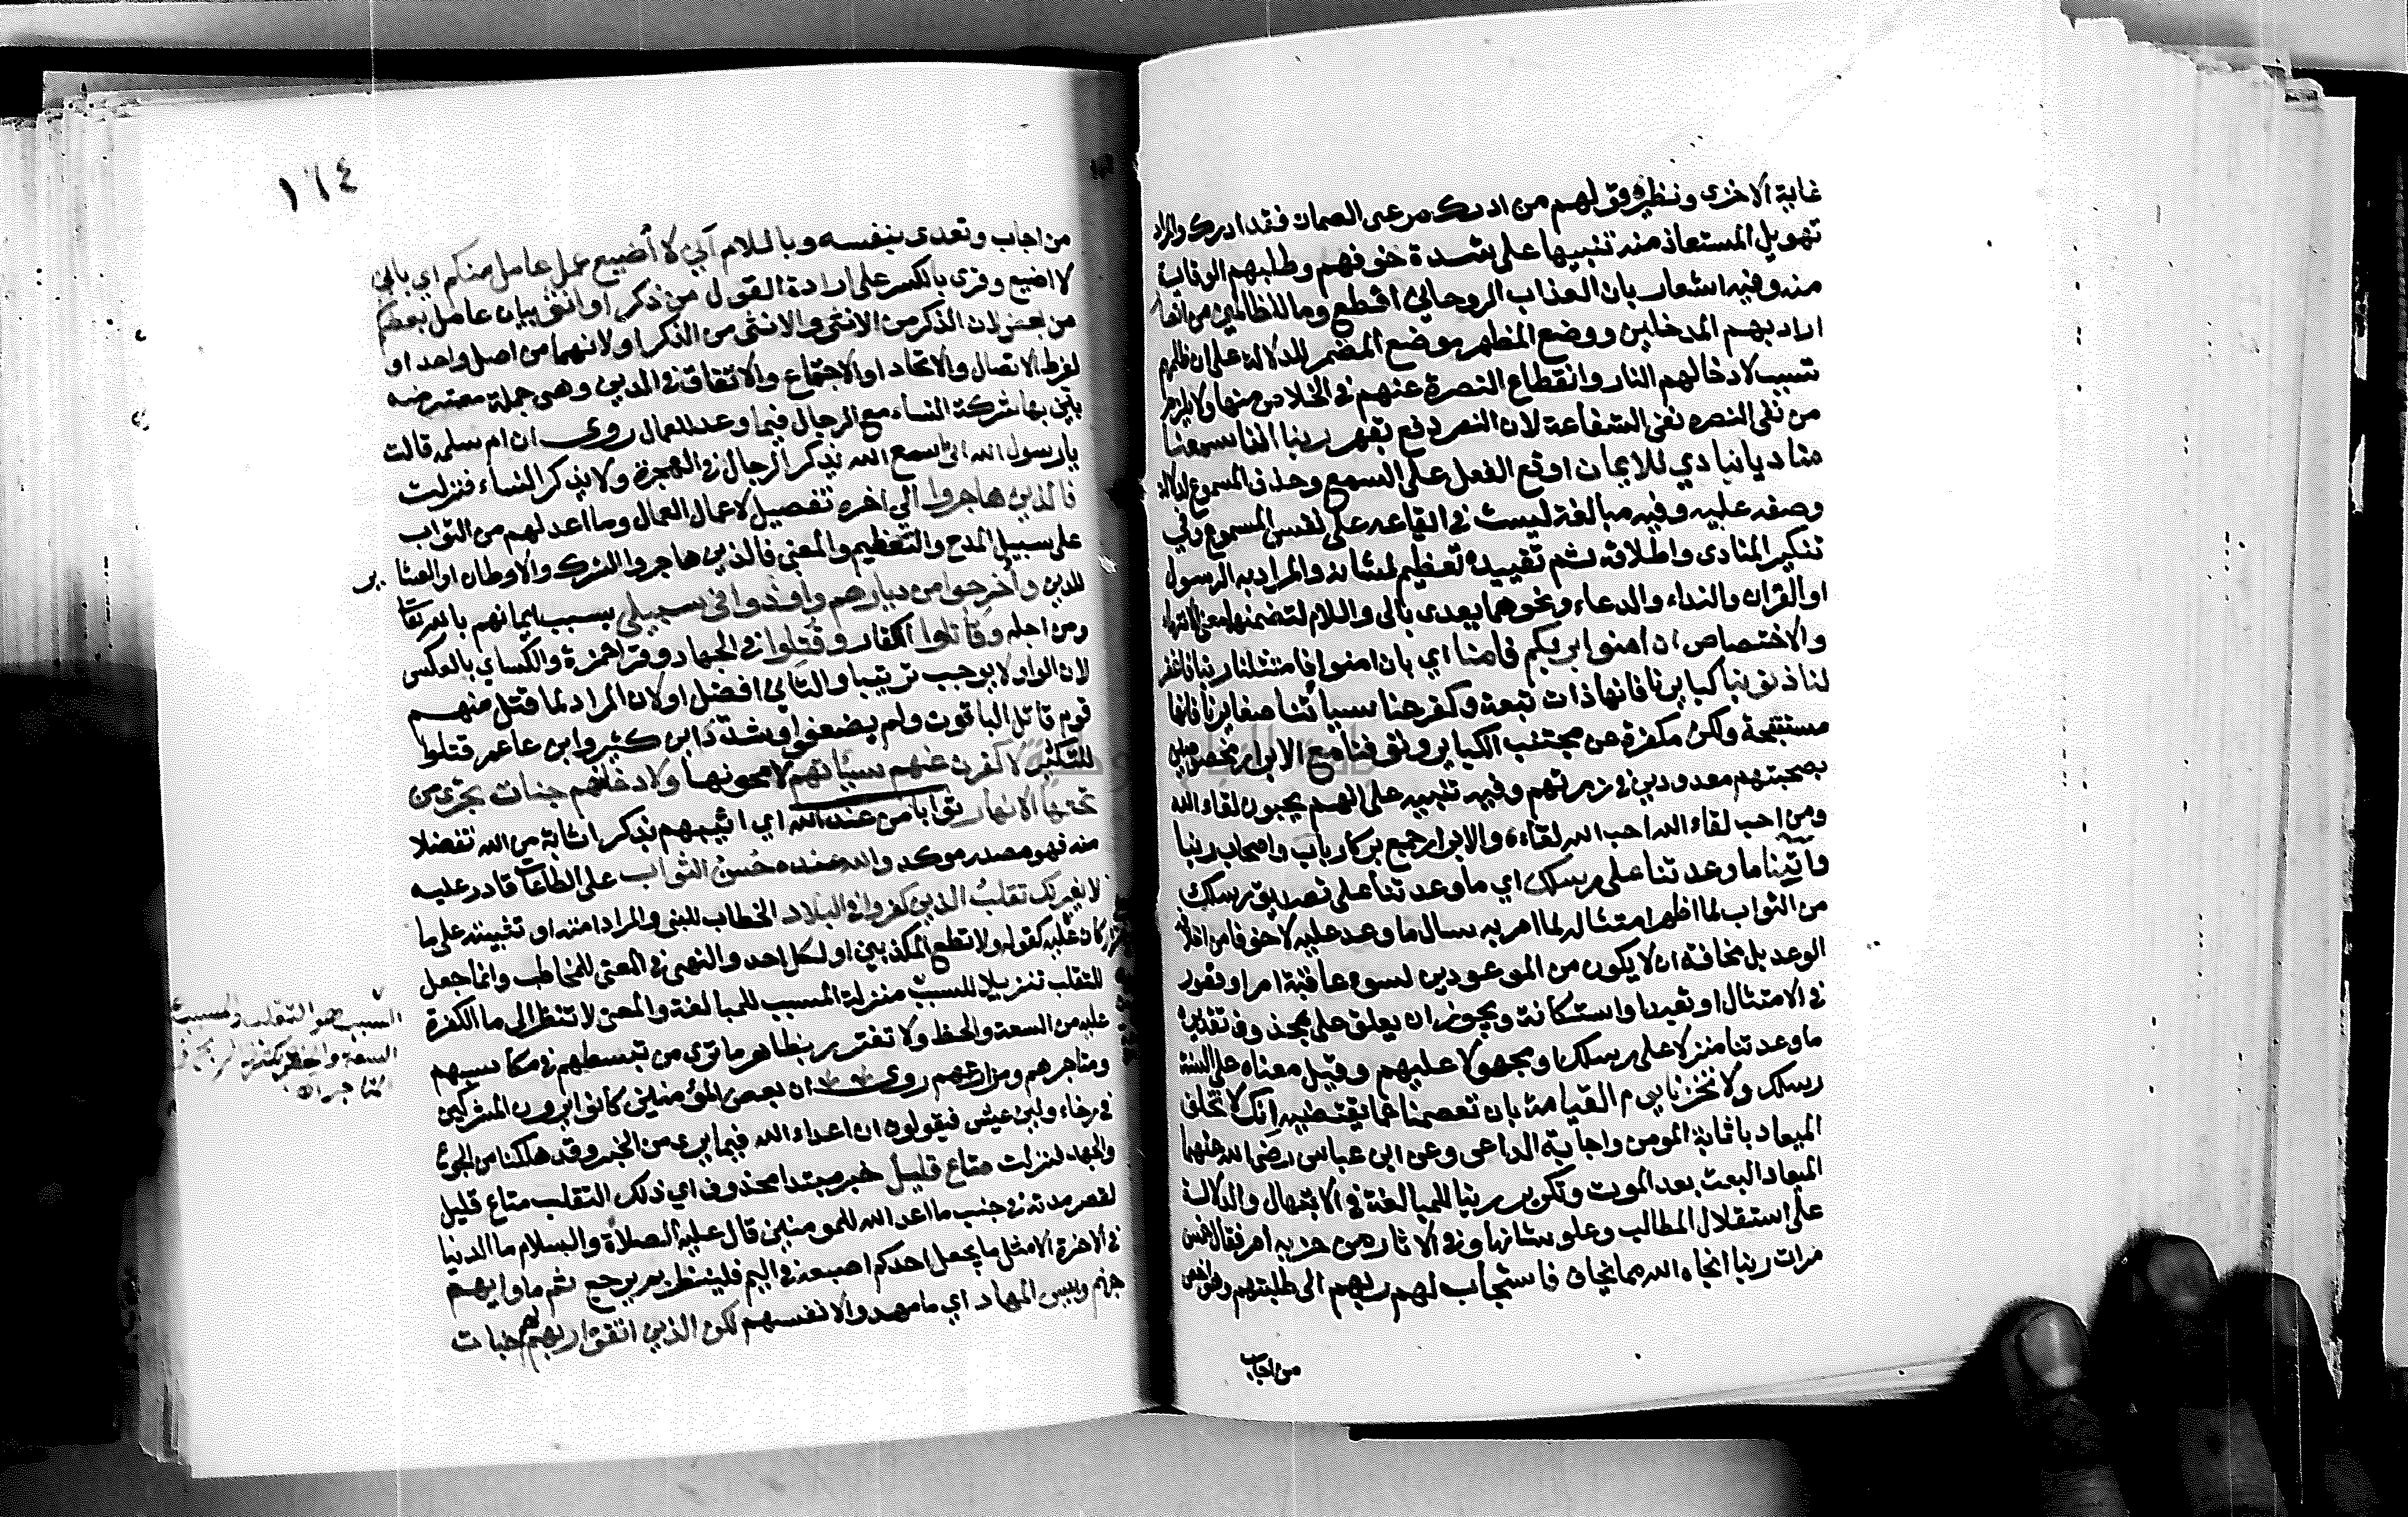 غاية الاخزى ونظيره قولهم من ادرك مرعى الصمان فقد ادرك والمراد
تهويل المستعاذ منه تنبيها على شدة خوفهم وطلبهم الوقاية
منه وفيه اشعار بان العذاب الروحاني افظع وما للظالمين من انصار
اراد بهم المدخلين ووضع المظهر موضع المضمر للدلالة على ان ظلمهم
تسبب لادخالهم النار وانقطاع النصرة عنهم في الخلاص منها ولا يلزم
من نفى النصره نفى الشفاعة لان النصر دفع بقهر ربنا اننا سمعنا
مناديا ينادي للايمان اوقع الفعل على السمع وحذف المسموع لدلالة
وصفه عليه وفيه مبالغة ليست في ايقاعه على نفس المسموع وفي
تنكير المنادى واطلاقه ثم تقييده تعظيم لشانه والمراد به الرسول
او القران والنداء والدعاء ونحوهما يعدى بالى واللام لتضمنها معنى الانتهاء
والاختصاص ان امنوا بربكم فامنا اي بان امنوا فامتثلنا ربنا فاغفر
لنا ذنوبنا كبايرنا فانها ذات تبعة وكفر عنا سيأتنا صغايرنا فانها
مستقبحة ولكن مكفرة عن مجتنب الكباير وتوفنا مع الابرار مخصوصين
بصحبتهم معدودين في زمرتهم وفيه تنبيه على انهم يحبون لقاء الله
ومن احب لقاء الله احب الله لقاءه والابرار جمع بر كارباب واصحاب ربنا
وآتنا ما وعدتنا على رسلك اي ما وعدتنا على تصديق رسلك
من الثواب لما اظهر امتثاله لما امر به سال ما وعد عليه لا خوفا من اخلاف
الوعد بل مخافة ان لا يكون من الموعودين لسوء عاقبة امر او قصور
في الامتثال او تعبدا واستكانة ويجوز ان يعلق على بمحذوف تقديره
ما وعدتنا منزلا على رسلك او محمولا عليهم وقيل معناه على السنة
رسلك ولا تخزنا يوم القيامة بان تعصمنا عما يقتضيه انك لا تخلف
الميعاد باثابة المومن واجابة الداعى وعن ابن عباس رضى الله عنهما
الميعاد البعث بعد الموت وتكرير ربنا للمبالغة في الابتهال والدلالة
على استقلال المطالب وعلو شانها وفي الاثار من حزبه امر فقال خمس
مرات ربنا انجاه الله مما يخاف فاستجاب لهم ربهم الى طلبتهم وهو اخص
من اجاب
١٦٤
من اجاب وتعدى بنفسه وباللام أني لا أضيع عمل عامل منكم اي باني
لا اضيع وقرى بالكسر على ارادة القول من ذكر او انثى بيان عامل بعضكم
من بعض لان الذكر من الانثى والانثى من الذكر او لانهما من اصل واحد او
لفرط الاتصال والاتحاد او الاجتماع والاتفاق في الدين وهى جملة معترضه
بين بها شركة النساء مع الرجال فيما وعد للعمال روى ان ام سلمه قالت
يا رسول الله انى اسمع الله يذكر الرجال في الهجرة ولا يذكر النساء فنزلت
فالذين هاجروا الى اخره تفصيل لاعمال العمال وما اعد لهم من الثواب
على سبيل المدح والتعظيم والمعنى فالذين هاجروا الشرك والاوطان او العشا
ير
للدين وأخرجوا من ديارهم وأوذوا فى سبيلي بسبب ايمانهم بالله
ومن اجله وقاتلوا الكفار وقتلوا في الجهاد وقرا حمزة والكساي بالعكس
لان الواو لا يوجب ترتيبا والثاني افضل او لان المراد لما قتل منهم
قوم قاتل الباقون ولم يضعفوا وشدّد ابن كثير وابن عامر قتلوا
للتكثير لاكفرن عنهم سيئاتهم لامحونها ولادخلنهم جنات تجري من
تحتها الانهار ثوابا من عند الله اي اثيبهم بذلك اثابة من الله تفضلا
منه فهو مصدر موكد والله عنده حسن الثواب على الطاعات قادر عليه
لا يغرنك تقلب الذين كفروا في البلاد الخطاب للنبى والمراد امته او تثبيته على ما
كان عليه كقوله ولا تطع المكذبين او لكل احد والنهى في المعنى للمخاطب وانما جعل
للتقلب تنزيلا للسبب منزلة المسبب للمبالغة والمعنى لا تنظر الى ما الكفرة
عليه من السعة والحظ ولا تغترر بظاهر ما ترى من تبسطهم في مكاسبهم
ومتاجرهم ومزارعهم روى ان بعض المؤمنين كانوا يرون المشركين
في رخاء ولين عيش فيقولون ان اعداء الله فيما يرى من الخير وقد هلكنا من الجوع
والجهد فنزلت متاع قليل خبر مبتدا محذوف اي ذلك التقلب متاع قليل
لقصر مدته في جنب ما اعد الله للمومنين قال عليه الصلاة والسلام ما الدنيا
في الاخرة الا مثل ما يجعل احدكم اصبعه في اليم فلينظر بم يرجع ثم ماواهم
جهنم وبيس المهاد اي ما مهدوا لانفسهم لكن الذين اتقوا ربهم لهم جنات
السبب هو التقلب والمسبب
السعة والحظ